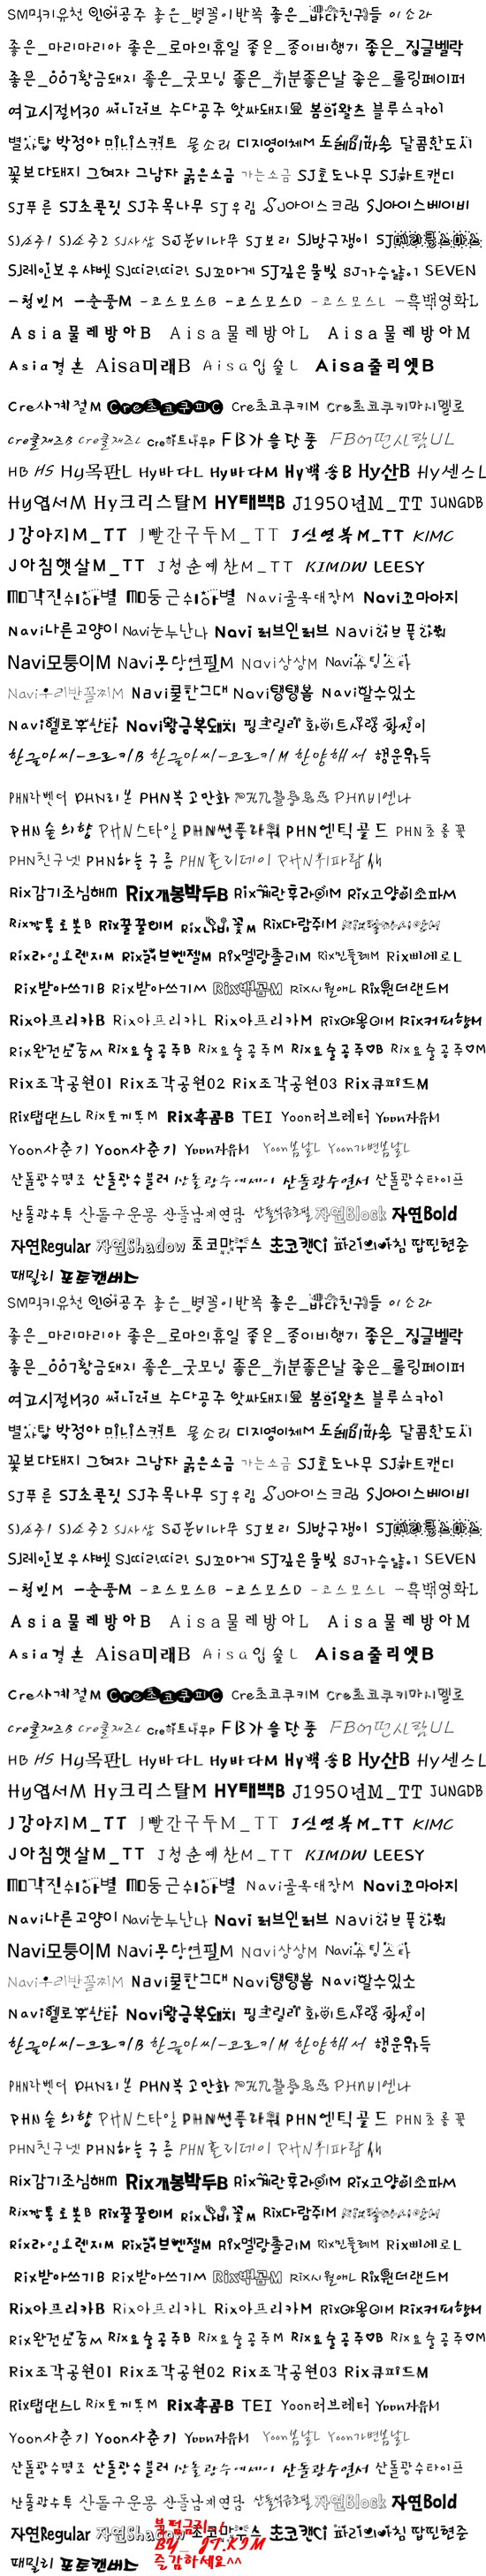 SM믹키유천 인어공주 좋은_별꽃이반쪽 좋은_바다친구들 이소라
좋은_마리마리아 좋은_로마의휴일 좋은_종이비행기 좋은_징글벨락
좋은_007황금돼지 좋은_굿모닝 좋은_기분좋은날 좋은_롤링페이퍼
여고시절M30 써니러브 수다공주 앗싸돼지표 봄의왈츠 블루스카이
별사탕 박정아 미니스커트 물소리 디지영이체M 도레미파솔 달콤한도시
꽃보다돼지 그여자 그남자 굵은소금 가는소금 SJ호도나무 SJ하트캔디
SJ푸른 SJ초콜릿 SJ주목나무 SJ우림 SJ아이스크림 SJ아이스베이비
SJ소주1 SJ소주2 SJ사삼 SJ분비나무 SJ보리 SJ방구쟁이
SJ레인보우샤벳 SJ따라따라 SJ꼬마게 SJ깊은물빛 SJ가슴앓이 SEVEN
-청빈M -춘풍M -코스모스B -코스모스D -코스모스L -흑백영화L
Asia물레방아B Aisa물레방아L Aisa물레방아M
Asia결혼 Aisa미래B Aisa입술L Aisa줄리엣B
Cre사계절M Cre초코쿠피C Cre초코쿠키M Cre초코쿠키마시멜로
Cre쿨재즈B Cre쿨재즈L Cre하트나무P FB가을단풍 FB어떤시람UL
HB HS Hy목판L Hy바다L Hy바다M Hy백송B Hy산B Hy센스L
Hy엽서M Hy크리스탈M HY태백B J1950년M_TT JUNGDB
J강아지M_TT J빨간구두M_TT J신영복M_TT KIMC
J아침햇살M_TT J청춘예찬M_TT KIMDW LEESY
MD각진수하별 MD둥근수하별 Navi골목대장M Navi꼬마아지
Navi나른고양이 Navi눈누난나 Navi러브인러브 Navi러브플라워
Navi모퉁이M Navi몽당연필M Navi상상M Navi슈팅스타
Navi우리반꼴찌M Navi쿨한그대 Navi탱탱볼 Navi할수있소
Navi헬로우산타 Navi황금복돼지 핑크릴리 화이트사랑 황진이
한글아씨-크로키B 한글아씨-크로키M 한양해서 행운가득
PHN라벤더 PHN리본 PHN복고만화 PHN비엔나
PHN숲의향 PHN스타일 PHN썬플라워 PHN엔틱골드 PHN초롱꽃
PHN친구넷 PHN하늘구름 PHN홀리데이 PHN휘파람새
Rix감기조심해M Rix개봉박두B Rix계란후라이M Rix고양이소파M
Rix깡통로봇B Rix꿀꿀이M Rix나비꽃M Rix다람쥐M
Rix라임오렌지M Rix러브엔젤M Rix멜랑촐리M Rix민들레M Rix삐에로L
Rix받아쓰기B Rix받아쓰기M Rix백곰M Rix시월애L Rix원더랜드M
Rix아프리카B Rix아프리카L Rix아프리카M Rix야옹이M Rix커피향M
Rix완전소중M Rix요술공주B Rix요술공주M Rix요술공주♡B Rix요술공주♡M
Rix조각공원01 Rix조각공원02 Rix조각공원03 Rix큐피드M
Rix탭댄스L Rix토끼똥M Rix흑곰B TEI Yoon러브레터 Yoon자유M
Yoon사춘기 Yoon사춘기 Yoon자유M Yoon봄날L Yoon가변봄날L
산돌광수명조 산돌광수블러 산돌광수에세이 산돌광수연서 산돌광수타이프
산돌광수투 산돌구운몽 산돌남계연담 산돌석금호필 자연Block 자연Bold
자연Regular 자연Shadow 초코마우스 초코캔Ci 파리의아침 팝띤현중
패밀리 포토캔버스
SM믹키유천 인어공주 좋은_별꽃이반쪽 좋은_바다친구들 이소라
좋은_마리마리아 좋은_로마의휴일 좋은_종이비행기 좋은_징글벨락
좋은_007황금돼지 좋은_굿모닝 좋은_기분좋은날 좋은_롤링페이퍼
여고시절M30 써니러브 수다공주 앗싸돼지표 봄의왈츠 블루스카이
별사탕 박정아 미니스커트 물소리 디지영이체M 도레미파솔 달콤한도시
꽃보다돼지 그여자 그남자 굵은소금 가는소금 SJ호도나무 SJ하트캔디
SJ푸른 SJ초콜릿 SJ주목나무 SJ우림 SJ아이스크림 SJ아이스베이비
SJ소주1 SJ소주2 SJ사삼 SJ분비나무 SJ보리 SJ방구쟁이
SJ레인보우샤벳 SJ따라따라 SJ꼬마게 SJ깊은물빛 SJ가슴앓이 SEVEN
-청빈M -춘풍M -코스모스B -코스모스D -코스모스L -흑백영화L
Asia물레방아B Aisa물레방아L Aisa물레방아M
Asia결혼 Aisa미래B Aisa입술L Aisa줄리엣B
Cre사계절M Cre초코쿠피C Cre초코쿠키M Cre초코쿠키마시멜로
Cre쿨재즈B Cre쿨재즈L Cre하트나무P FB가을단풍 FB어떤시람UL
HB HS Hy목판L Hy바다L Hy바다M Hy백송B Hy산B Hy센스L
Hy엽서M Hy크리스탈M HY태백B J1950년M_TT JUNGDB
J강아지M_TT J빨간구두M_TT J신영복M_TT KIMC
J아침햇살M_TT J청춘예찬M_TT KIMDW LEESY
MD각진수하별 MD둥근수하별 Navi골목대장M Navi꼬마아지
Navi나른고양이 Navi눈누난나 Navi러브인러브 Navi러브플라워
Navi모퉁이M Navi몽당연필M Navi상상M Navi슈팅스타
Navi우리반꼴찌M Navi쿨한그대 Navi탱탱볼 Navi할수있소
Navi헬로우산타 Navi황금복돼지 핑크릴리 화이트사랑 황진이
한글아씨-크로키B 한글아씨-크로키M 한양해서 행운가득
PHN라벤더 PHN리본 PHN복고만화 PHN비엔나
PHN숲의향 PHN스타일 PHN썬플라워 PHN엔틱골드 PHN초롱꽃
PHN친구넷 PHN하늘구름 PHN홀리데이 PHN휘파람새
Rix감기조심해M Rix개봉박두B Rix계란후라이M Rix고양이소파M
Rix깡통로봇B Rix꿀꿀이M Rix나비꽃M Rix다람쥐M
Rix라임오렌지M Rix러브엔젤M Rix멜랑촐리M Rix민들레M Rix삐에로L
Rix받아쓰기B Rix받아쓰기M Rix백곰M Rix시월애L Rix원더랜드M
Rix아프리카B Rix아프리카L Rix아프리카M Rix야옹이M Rix커피향M
Rix완전소중M Rix요술공주B Rix요술공주M Rix요술공주♡B Rix요술공주♡M
Rix조각공원01 Rix조각공원02 Rix조각공원03 Rix큐피드M
Rix탭댄스L Rix토끼똥M Rix흑곰B TEI Yoon러브레터 Yoon자유M
Yoon사춘기 Yoon사춘기 Yoon자유M Yoon봄날L Yoon가변봄날L
산돌광수명조 산돌광수블러 산돌광수에세이 산돌광수연서 산돌광수타이프
산돌광수투 산돌구운몽 산돌남계연담 산돌석금호필 자연Block 자연Bold
불펌금지~!
자연Regular 자연Shadow 초코마우스 초코캔Ci 파리의아침 팝띤현중
BY_ JT.KIM
패밀리 포토캔버스
즐감하세요^^